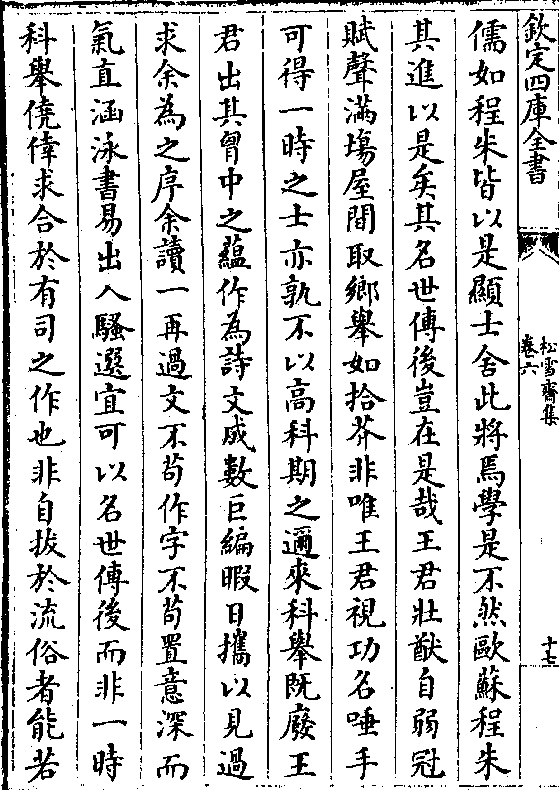 欽定四庫全書
松雪齋集
卷六
十七
儒如程朱皆以是顯士舍此將焉學是不然歐蘇程朱
其進以是矣其名世傳後豈在是哉王君壯猷自弱冠
賦聲滿塲屋間取鄉舉如拾芥非唯王君視功名唾手
可得一時之士亦孰不以髙科期之邇來科舉既廢王
君出其胷中之蘊作為詩文成數巨編暇日攜以見過
求余為之序余讀一再過文不苟作字不苟置意深而
氣直涵泳書易出入騷選宜可以名世傳後而非一時
科舉僥倖求合於有司之作也非自拔於流俗者能若